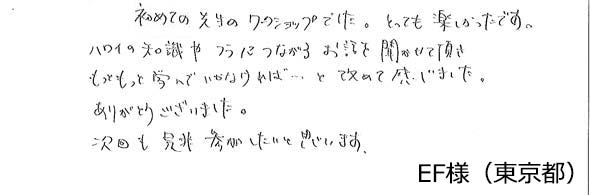 初めての先生のワークショップでした。とっても楽しかったです。
ハワイの知識やフラにつながるお話を聞かせて頂き
もっともっと学んでいかなければ…と改めて感じました。
ありがとうございました。
次回も是非参加したいと思います。
EF様（東京都）